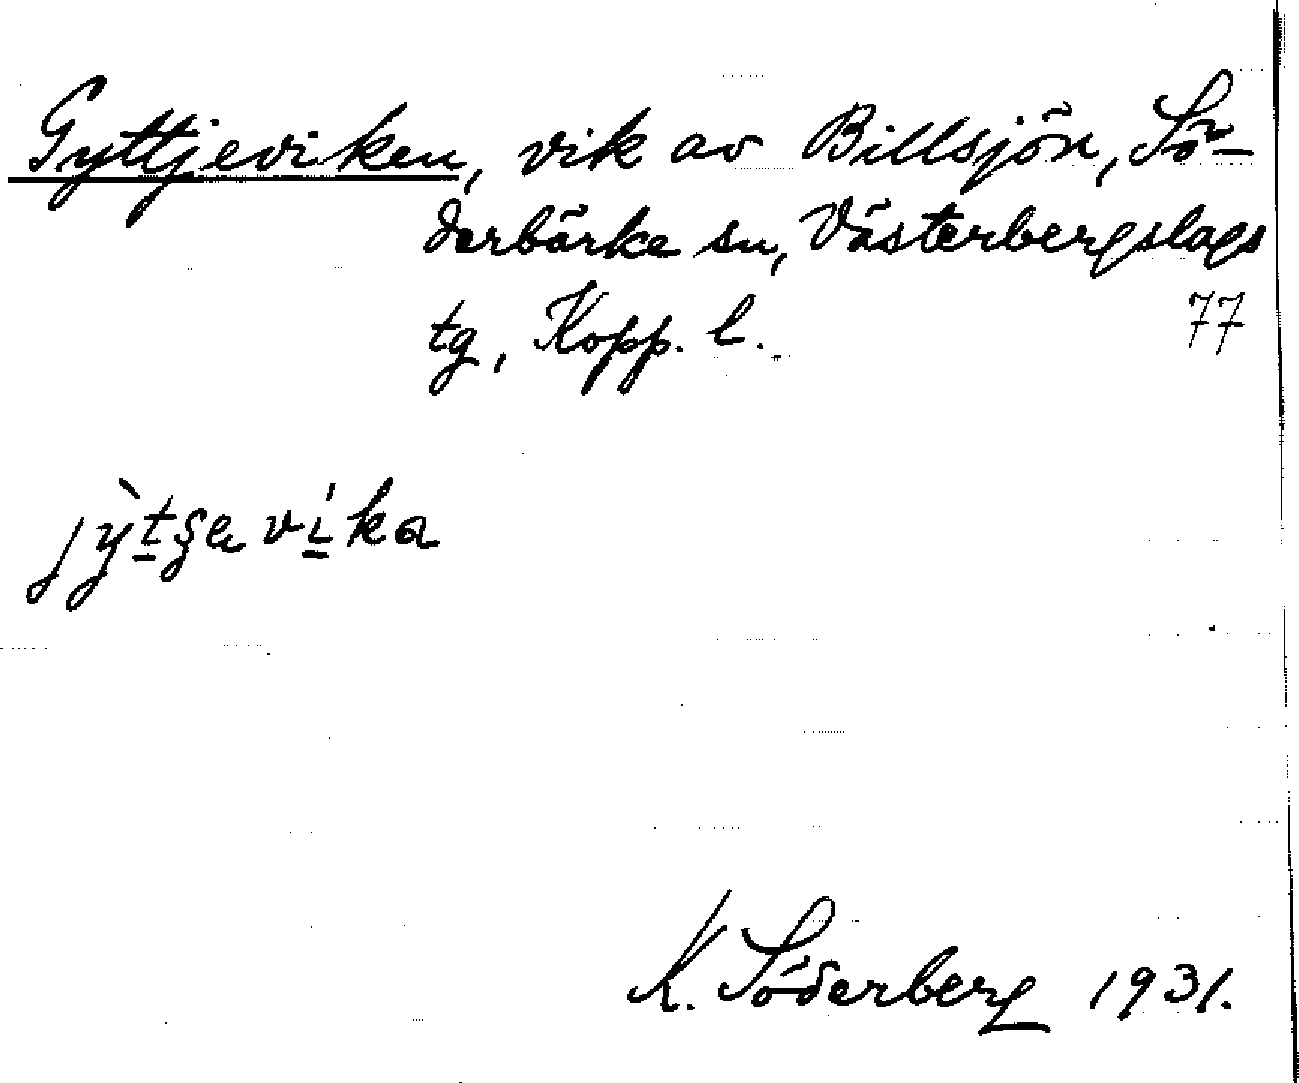 Gyttjeviken, vik av Billsjön, Sö-
derbärke sn, Västerbergslags
tg, Kopp. l. 77
jỳ̠tʂe ví̠ka
K. Söderberg 1931.